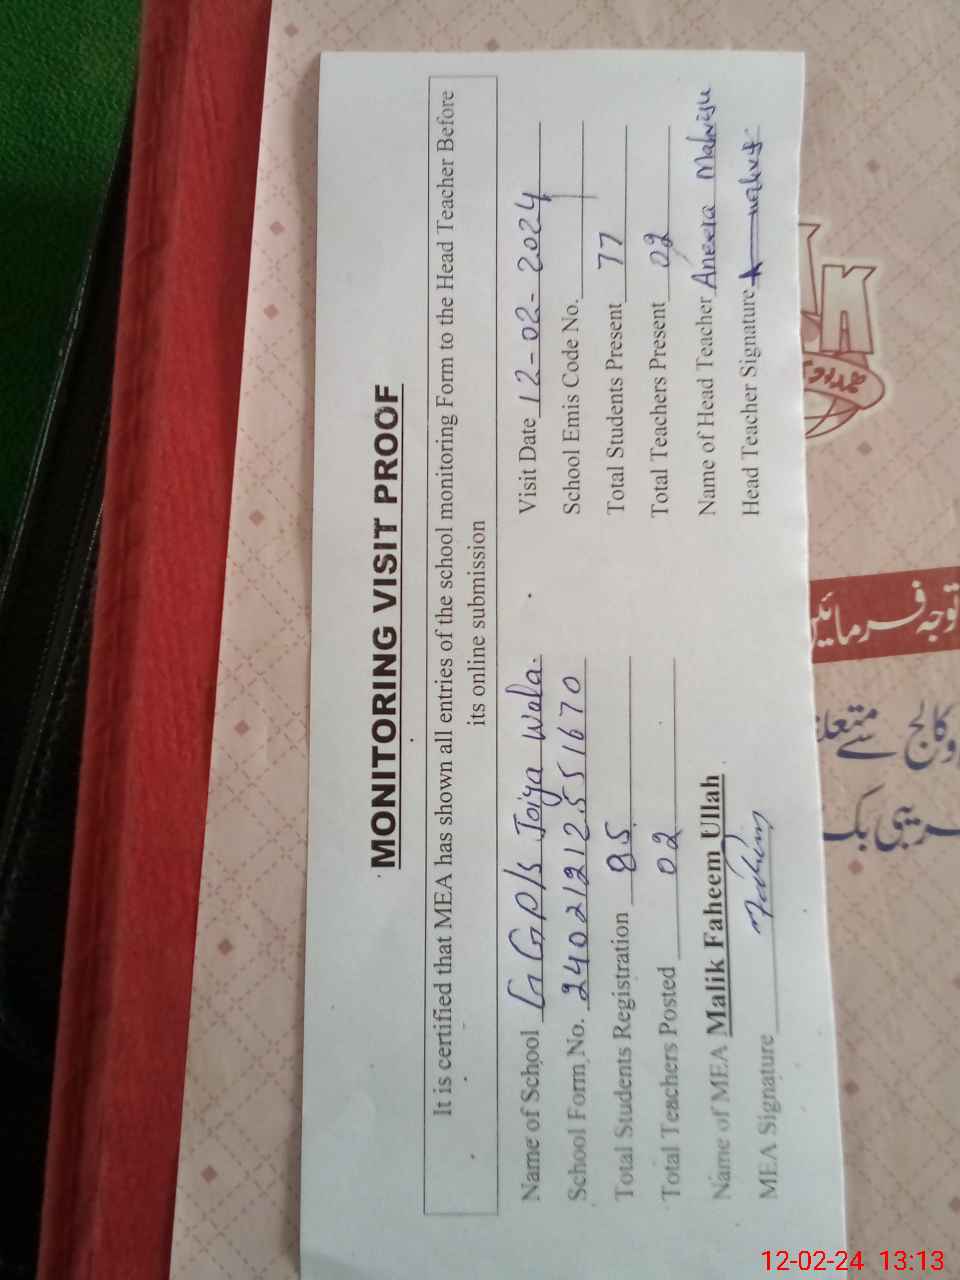 MONITORING VISIT PROOF
It is certified that MEA has shown all entries of the school monitoring Form to the Head Teacher Before
its online submission
Name of School GGP/s Joiya Wala. Visit Date 12-02-2024
School Form No. 24021212551670 School Emis Code No.
Total Students Registration 85 Total Students Present 77
Total Teachers Posted 02 Total Teachers Present 02
Name of MEA Malik Faheem Ullah Name of Head Teacher Aneera
MEA Signature Head Teacher Signature
توجہ فرمائیں
12-02-24 13:13